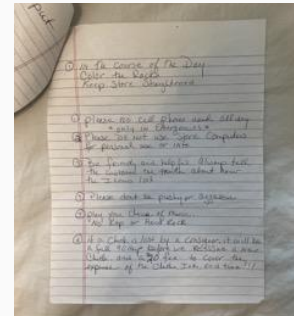 put
① in the Course of the Day
Color the Racks
Keep Store Straightened
① please no cell phone used all day
* only in Emergencies *
② Please do not use Store Computers
for personal use or info
③ Be friendly and helpful Always tell
the customer the truth about how
the looks
④ Please don't be pushy or
⑤ play your choice of Music
No Rap or Hard Rock
⑥ if a Check is lost by a Customer, it will be
a full before we Reissue a new
Check and a fee to cover the
expense of the time !!!